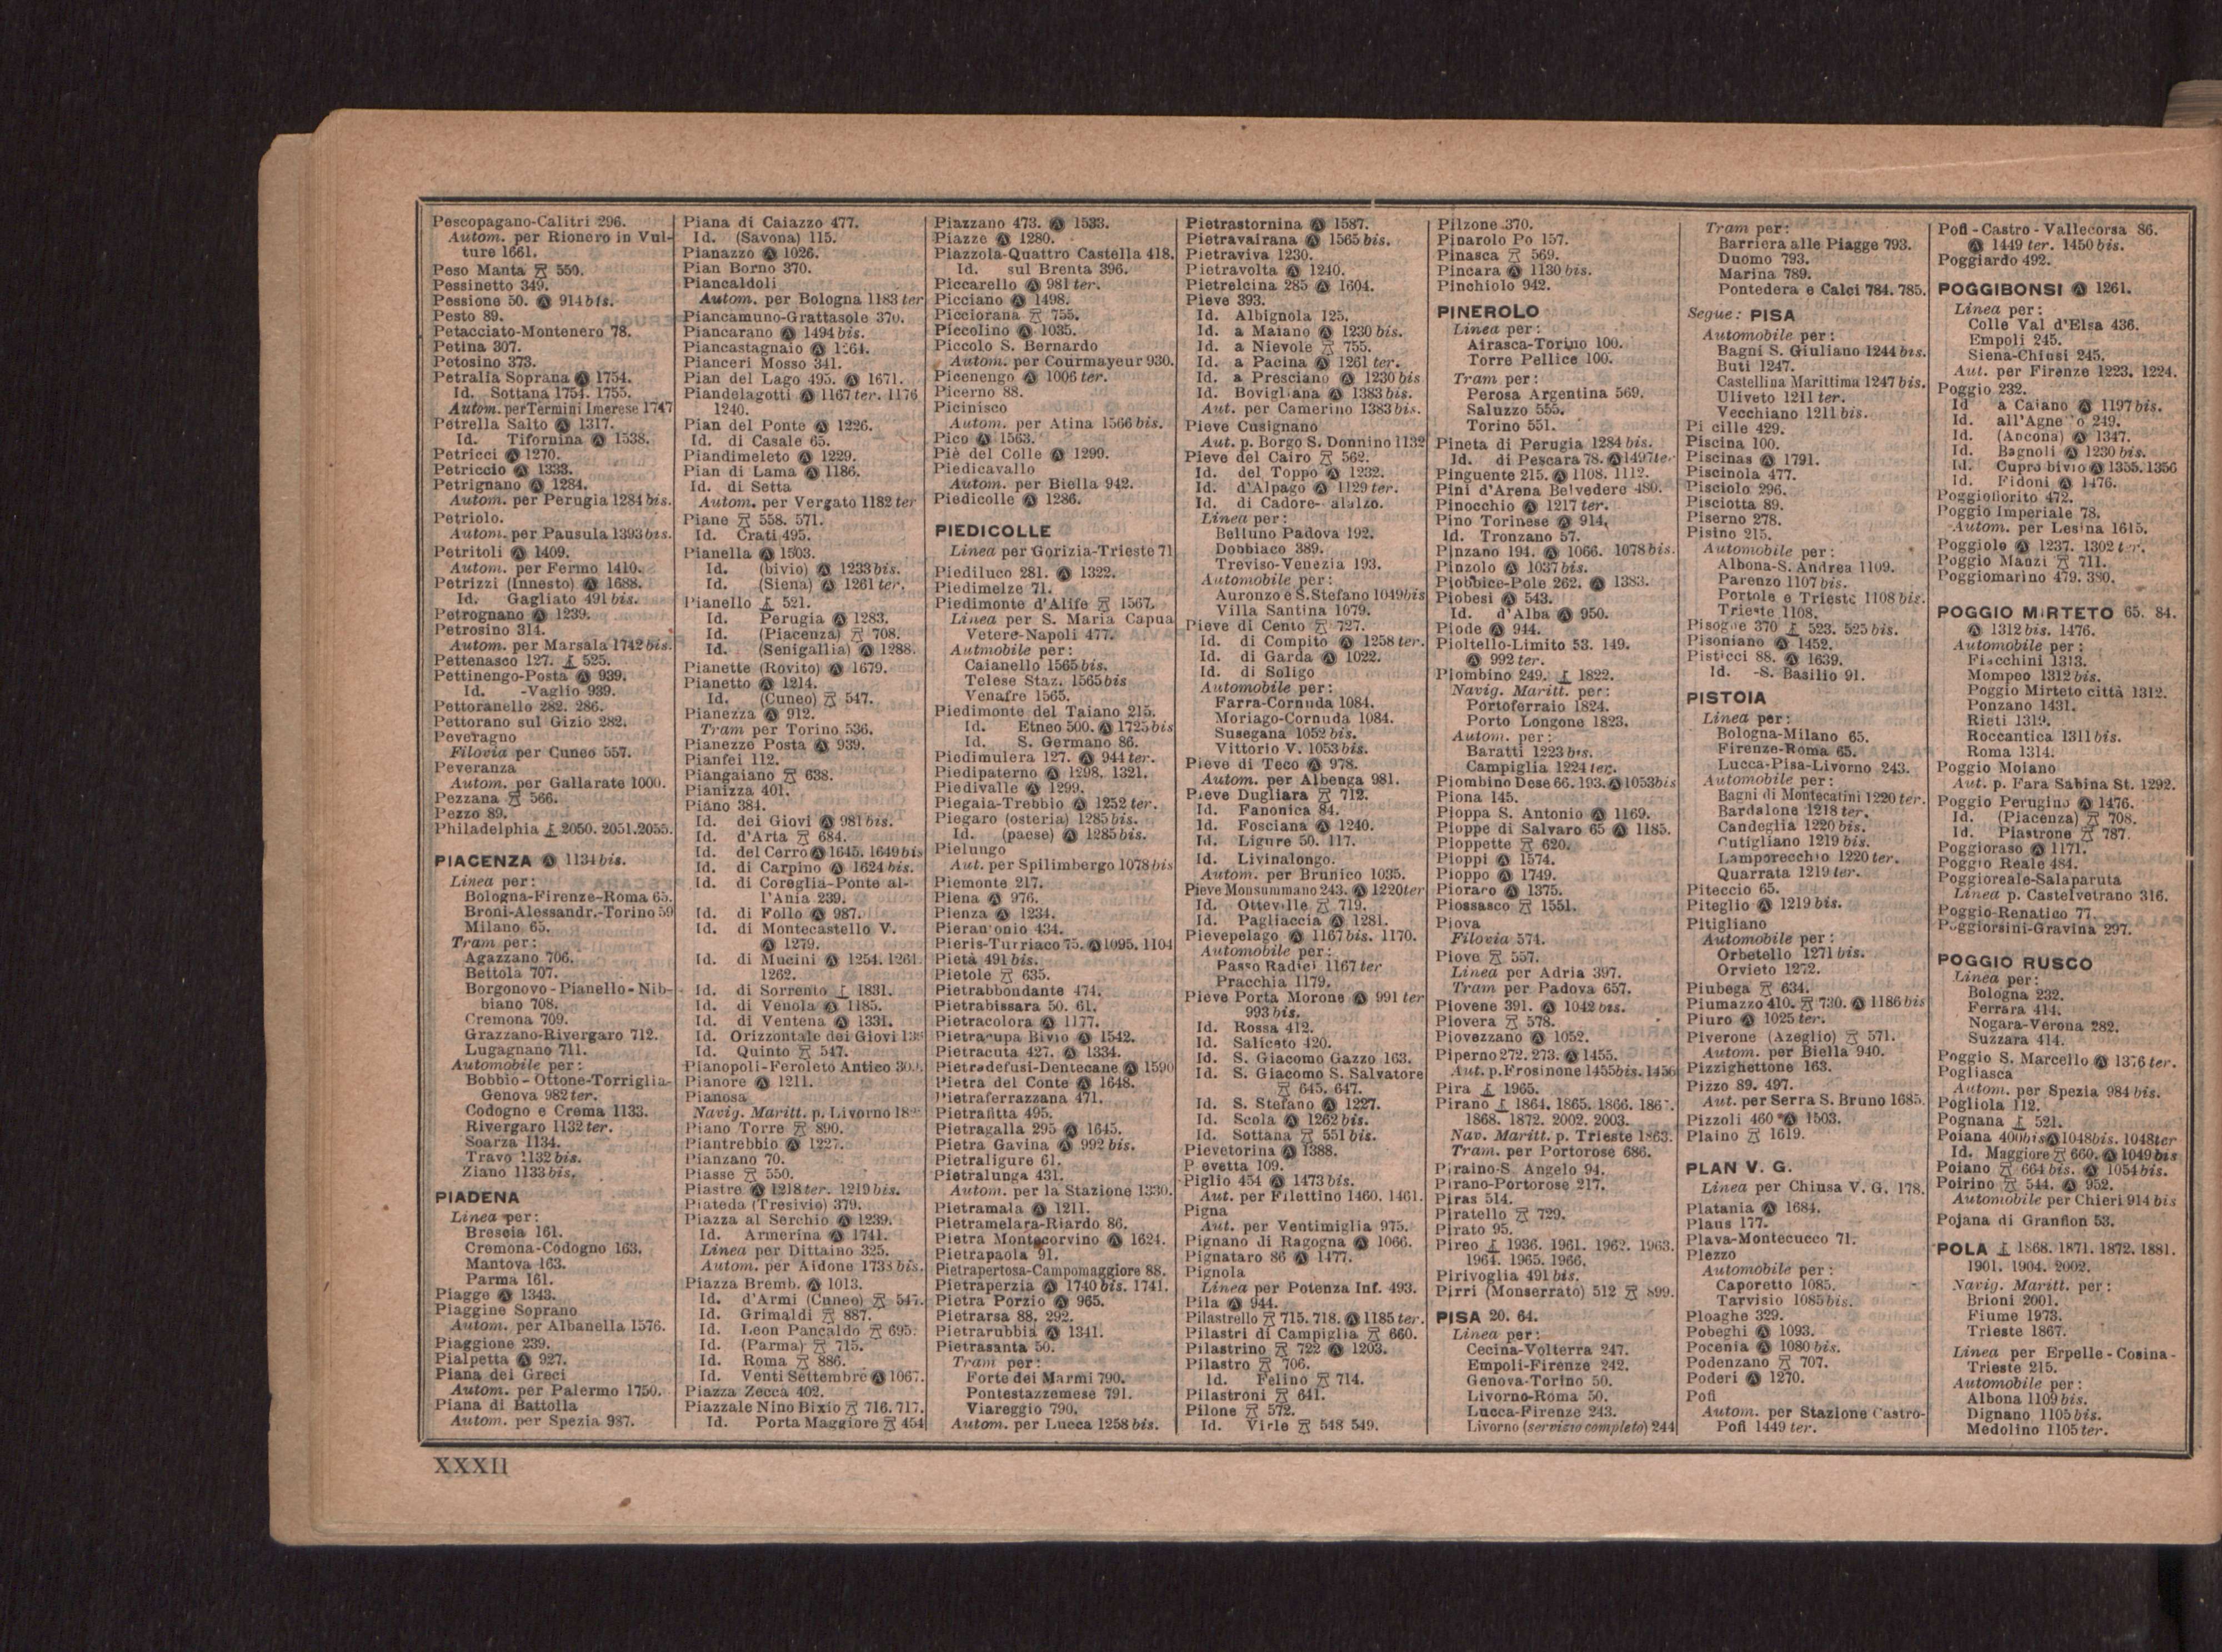 Pescopagano-Calitri 296.
Autom. per Rionero in Vul-
ture 1661.
Peso Manta 550.
Pessinetto 349.
Pessione 50. Ⓐ 914 bis.
Pesto 89.
Petacciato-Montenero 78.
Petina 307.
Petosino 373.
Petralia Soprana Ⓐ 1754.
Id. Sottana 1754. 1755.
Autom. per Termini Imerese 1747
Petrella Salto Ⓐ 1317.
Id. Tifernina Ⓐ 1538.
Petricci Ⓐ 1270.
Petriccio Ⓐ 1333.
Petrignano Ⓐ 1284.
Autom. per Perugia 1284 bis.
Petriolo.
Autom. per Pausula 1393 bis.
Petritoli Ⓐ 1409.
Autom. per Fermo 1410.
Petrizzi (Innesto) Ⓐ 1688.
Id. Gagliato 491 bis.
Petrognano Ⓐ 1239.
Petrosino 314.
Autom. per Marsala 1742 bis.
Pettenasco 127. 525.
Pettinengo-Posta Ⓐ 939.
Id. -Vaglio 939.
Pettoranello 282. 286.
Pettorano sul Gizio 282.
Peveragno
Filovia per Cuneo 557.
Peveranza
Autom. per Gallarate 1000.
Pezzana 566.
Pezzo 89.
Philadelphia 2050. 2051. 2055.
PIACENZA Ⓐ 1134 bis.
Linea per:
Bologna-Firenze-Roma 65.
Broni-Alessandr.-Torino 59
Milano 65.
Tram per:
Agazzano 706.
Bettola 707.
Borgonovo-Pianello-Nib-
biano 708.
Cremona 709.
Grazzano-Rivergaro 712.
Lugagnano 711.
Automobile per:
Bobbio-Ottone-Torriglia-
Genova 982 ter.
Codogno e Crema 1133.
Rivergaro 1132 ter.
Soarza 1134.
Travo 1132 bis.
Ziano 1133 bis.
PIADENA
Linea per:
Brescia 161.
Cremona-Codogno 163.
Mantova 163.
Parma 161.
Piagge Ⓐ 1343.
Piaggine Soprano
Autom. per Albanella 1576.
Piaggione 239.
Pialpetta Ⓐ 927.
Piana dei Greci
Autom. per Palermo 1750.
Piana di Battolla
Autom. per Spezia 987.
Piana di Caiazzo 477.
Id. (Savona) 115.
Pianazzo Ⓐ 1026.
Pian Borno 370.
Piancaldoli
Autom. per Bologna 1183 ter
Piancamuno-Grattasole 370.
Piancarano Ⓐ 1494 bis.
Piancastagnaio Ⓐ 1264.
Pianceri Mosso 341.
Pian del Lago 495. Ⓐ 1671.
Piandelagotti Ⓐ 1167 ter. 1176
1240.
Pian del Ponte Ⓐ 1226.
Id. di Casale 65.
Piandimeleto Ⓐ 1229.
Pian di Lama Ⓐ 1186.
Id. di Setta
Autom. per Vergato 1182 ter
Piane 558. 571.
Id. Crati 495.
Pianella Ⓐ 1503.
Id. (bivio) Ⓐ 1233 bis.
Id. (Siena) Ⓐ 1261 ter.
Pianello 521.
Id. Perugia Ⓐ 1283.
Id. (Piacenza) 708.
Id. (Senigallia) Ⓐ 1288.
Pianette (Rovito) Ⓐ 1679.
Pianetto Ⓐ 1214.
Id. (Cuneo) 547.
Pianezza Ⓐ 912.
Tram per Torino 536.
Pianezze Posta Ⓐ 939.
Pianfei 112.
Piangaiano 638.
Pianizza 401.
Piano 384.
Id. dei Giovi Ⓐ 981 bis.
Id. d'Arta 684.
Id. del Cerro Ⓐ 1645. 1649 bis
Id. di Carpino Ⓐ 1624 bis.
Id. di Coreglia-Ponte al-
l'Ania 239.
Id. di Follo Ⓐ 987.
Id. di Montecastello V.
Ⓐ 1279.
Id. di Mucini Ⓐ 1254. 1261.
1262.
Id. di Sorrento 1831.
Id. di Venola Ⓐ 1185.
Id. di Ventena Ⓐ 1331.
Id. Orizzontale dei Giovi
Id. Quinto 547.
Pianopoli-Feroleto Antico
Pianore Ⓐ 1211.
Pianosa
Navig. Maritt. p. Livorno
Piano Torre 890.
Piantrebbio Ⓐ 1227.
Pianzano 70.
Piasse 550.
Piastre Ⓐ 1218 ter. 1219 bis.
Piateda (Tresivio) 379.
Piazza al Serchio Ⓐ 1239.
Id. Armerina Ⓐ 1741.
Linea per Dittaino 325.
Autom. per Aidone 1733 bis.
Piazza Bremb. Ⓐ 1013.
Id. d'Armi (Cuneo) 547.
Id. Grimaldi 887.
Id. Leon Pancaldo 695.
Id. (Parma) 715.
Id. Roma 886.
Id. Venti Settembre Ⓐ 1067.
Piazza Zecca 402.
Piazzale Nino Bixio 716. 717.
Id. Porta Maggiore 454
Piazzano 473. Ⓐ 1533.
Piazze Ⓐ 1280.
Piazzola-Quattro Castella 418.
Id. sul Brenta 396.
Piccarello Ⓐ 981 ter.
Picciano Ⓐ 1498.
Picciorana 755.
Piccolino Ⓐ 1035.
Piccolo S. Bernardo
Autom. per Courmayeur 930.
Picenengo Ⓐ 1006 ter.
Picerno 88.
Picinisco
Autom. per Atina 1566 bis.
Pico Ⓐ 1563.
Piè del Colle Ⓐ 1299.
Piedicavallo
Autom. per Biella 942.
Piedicolle Ⓐ 1286.
PIEDICOLLE
Linea per Gorizia-Trieste 71
Piediluco 281. Ⓐ 1322.
Piedimelze 71.
Piedimonte d'Alife 1567.
Linea per S. Maria Capua
Vetere-Napoli 477.
Autmobile per:
Caianello 1565 bis.
Telese Staz. 1565 bis
Venafre 1565.
Piedimonte del Taiano 215.
Id. Etneo 500. Ⓐ 1725 bis
Id. S. Germano 86.
Piedimulera 127. Ⓐ 944 ter.
Piedipaterno Ⓐ 1298. 1321.
Piedivalle Ⓐ 1299.
Piegaia-Trebbio Ⓐ 1252 ter.
Piegaro (osteria) 1285 bis.
Id. (paese) Ⓐ 1285 bis.
Pielungo
Aut. per Spilimbergo 1078 bis
Piemonte 217.
Piena Ⓐ 976.
Pienza Ⓐ 1234.
Pierantonio 434.
Pieris-Turriaco 75. Ⓐ 1095. 1104
Pietà 491 bis.
Pietole 635.
Pietrabbondante 474.
Pietrabissara 50. 61.
Pietracolora Ⓐ 1177.
Pietracupa Bivio Ⓐ 1542.
Pietracuta 427. Ⓐ 1334.
Pietradefusi-Dentecane Ⓐ 1590
Pietra del Conte Ⓐ 1648.
Pietraferrazzana 471.
Pietrafitta 495.
Pietragalla 295 Ⓐ 1645.
Pietra Gavina Ⓐ 992 bis.
Pietraligure 61.
Pietralunga 431.
Autom. per la Stazione 1330.
Pietramala Ⓐ 1211.
Pietramelara-Riardo 86.
Pietra Montecorvino Ⓐ 1624.
Pietrapaola 91.
Pietrapertosa-Campomaggiore 88.
Pietraperzia Ⓐ 1740 bis. 1741.
Pietra Porzio Ⓐ 965.
Pietrarsa 88. 292.
Pietrarubbia Ⓐ 1341.
Pietrasanta 50.
Tram per:
Forte dei Marmi 790.
Pontestazzemese 791.
Viareggio 790.
Autom. per Lucca 1258 bis.
Pietrastornina Ⓐ 1587.
Pietravairana Ⓐ 1565 bis.
Pietraviva 1230.
Pietravolta Ⓐ 1240.
Pietrelcina 285 Ⓐ 1604.
Pieve 393.
Id. Albignola 125.
Id. a Maiano Ⓐ 1230 bis.
Id. a Nievole 755.
Id. a Pacina Ⓐ 1261 ter.
Id. a Presciano Ⓐ 1230 bis
Id. Bovigliana Ⓐ 1383 bis.
Aut. per Camerino 1383 bis.
Pieve Cusignano
Aut. p. Borgo S. Donnino 1132
Pieve del Cairo 562.
Id. del Toppo Ⓐ 1232.
Id. d'Alpago Ⓐ 1129 ter.
Id. di Cadore-
Linea per:
Belluno Padova 192.
Dobbiaco 389.
Treviso-Venezia 193.
Automobile per:
Auronzo e S. Stefano 1049 bis
Villa Santina 1079.
Pieve di Cento 727.
Id. di Compito Ⓐ 1258 ter.
Id. di Garda Ⓐ 1022.
Id. di Soligo
Automobile per:
Farra-Cornuda 1084.
Moriago-Cornuda 1084.
Susegana 1052 bis.
Vittorio V. 1053 bis.
Pieve di Teco Ⓐ 978.
Autom. per Albenga 981.
Pieve Dugliara 712.
Id. Fanonica 84.
Id. Fosciana Ⓐ 1240.
Id. Ligure 50. 117.
Id. Livinalongo.
Autom. per Brunico 1035.
Pieve Monsummano 243. Ⓐ 1220 ter
Id. Otteville 719.
Id. Pagliaccia Ⓐ 1281.
Pievepelago Ⓐ 1167 bis. 1170.
Automobile per:
Passo Radici 1167 ter
Pracchia 1179.
Pieve Porta Morone Ⓐ 991 ter
993 bis.
Id. Rossa 412.
Id. Saliceto 420.
Id. S. Giacomo Gazzo 163.
Id. S. Giacomo S. Salvatore
645. 647.
Id. S. Stefano Ⓐ 1227.
Id. Scola Ⓐ 1262 bis.
Id. Sottana 551 bis.
Pievetorina Ⓐ 1388.
Pievetta 109.
Piglio 454 Ⓐ 1473 bis.
Aut. per Filettino 1460. 1461.
Pigna
Aut. per Ventimiglia 975.
Pignano di Ragogna Ⓐ 1066.
Pignataro 86 Ⓐ 1477.
Pignola
Linea per Potenza Inf. 493.
Pila Ⓐ 944.
Pilastrello 715. 718. Ⓐ 1185 ter.
Pilastri di Campiglia 660.
Pilastrino 722 Ⓐ 1203.
Pilastro 706.
Id. Felino 714.
Pilastroni 641.
Pilone 572.
Id. Virle 548 549.
Pilzone 370.
Pinarolo Po 157.
Pinasca 569.
Pincara Ⓐ 1130 bis.
Pinchiolo 942.
PINEROLO
Linea per:
Airasca-Torino 100.
Torre Pellice 100.
Tram per:
Perosa Argentina 569.
Saluzzo 555.
Torino 551.
Pineta di Perugia 1284 bis.
Id. di Pescara 78. Ⓐ 1497 ter
Pinguente 215. Ⓐ 1108. 1112.
Pini d'Arena Belvedere 480.
Pinocchio Ⓐ 1217 ter.
Pino Torinese Ⓐ 914.
Id. Tronzano 57.
Pinzano 194. Ⓐ 1066. 1078 bis.
Pinzolo Ⓐ 1037 bis.
Piobbice-Pole 262. Ⓐ 1383.
Piobesi Ⓐ 543.
Id. d'Alba Ⓐ 950.
Piode Ⓐ 944.
Pioltello-Limito 53. 149.
Ⓐ 992 ter.
Piombino 249. 1822.
Navig. Maritt. per:
Portoferraio 1824.
Porto Longone 1823.
Autom. per:
Baratti 1223 bis.
Campiglia 1224 ter.
Piombino Dese 66. 193. Ⓐ 1053 bis
Piona 145.
Pioppa S. Antonio Ⓐ 1169.
Pioppe di Salvaro 65 Ⓐ 1185.
Pioppette 620.
Pioppi Ⓐ 1574.
Pioppo Ⓐ 1749.
Pioraro Ⓐ 1375.
Piossasco 1551.
Piova
Filovia 574.
Piove 557.
Linea per Adria 397.
Tram per Padova 657.
Piovene 391. Ⓐ 1042 bis.
Piovera 578.
Piovezzano Ⓐ 1052.
Piperno 272. 273. Ⓐ 1455.
Aut. p. Frosinone 1455 bis. 1456
Pira 1965.
Pirano 1864. 1865. 1866. 1867.
1868. 1872. 2002. 2003.
Nav. Maritt. p. Trieste 1863.
Tram. per Portorose 686.
Piraino-S. Angelo 94.
Pirano-Portorose 217.
Piras 514.
Piratello 729.
Pirato 95.
Pireo 1936. 1961. 1962. 1963.
1964. 1965. 1966.
Pirivoglia 491 bis.
Pirri (Monserrato) 512 899.
PISA 20. 64.
Linea per:
Cecina-Volterra 247.
Empoli-Firenze 242.
Genova-Torino 50.
Livorno-Roma 50.
Lucca-Firenze 243.
Livorno (servizio completo) 244
Tram per:
Barriera alle Piagge 793.
Duomo 793.
Marina 789.
Pontedera e Calci 784. 785.
Segue: PISA
Automobile per:
Bagni S. Giuliano 1244 bis.
Buti 1247.
Castellina Marittima 1247 bis.
Uliveto 1211 ter.
Vecchiano 1211 bis.
Pi cille 429.
Piscina 100.
Piscinas Ⓐ 1791.
Piscinola 477.
Pisciolo 296.
Pisciotta 89.
Piserno 278.
Pisino 215.
Automobile per:
Albona-S. Andrea 1109.
Parenzo 1107 bis.
Portole e Trieste 1108 bis.
Trieste 1108.
Pisogne 370 523. 525 bis.
Pisoniano Ⓐ 1452.
Pisticci 88. Ⓐ 1639.
Id. -S. Basilio 91.
PISTOIA
Linea per:
Bologna-Milano 65.
Firenze-Roma 65.
Lucca-Pisa-Livorno 243.
Automobile per:
Bagni di Montecatini 1220 ter.
Bardalone 1218 ter.
Candeglia 1220 bis.
Cutigliano 1219 bis.
Lamporecchio 1220 ter.
Quarrata 1219 ter.
Piteccio 65.
Piteglio Ⓐ 1219 bis.
Pitigliano
Automobile per:
Orbetello 1271 bis.
Orvieto 1272.
Piubega 634.
Piumazzo 410. 730. Ⓐ 1186 bis
Piuro Ⓐ 1025 ter.
Piverone (Azeglio) 571.
Autom. per Biella 940.
Pizzighettone 163.
Pizzo 89. 497.
Aut. per Serra S. Bruno 1685.
Pizzoli 460 Ⓐ 1503.
Plaino 1619.
PLAN V. G.
Linea per Chiusa V. G. 178.
Platania Ⓐ 1684.
Plaus 177.
Plava-Montecucco 71.
Plezzo
Automobile per:
Caporetto 1085.
Tarvisio 1085 bis.
Ploaghe 329.
Pobeghi Ⓐ 1093.
Pocenia Ⓐ 1080 bis.
Podenzano 707.
Poderi Ⓐ 1270.
Pofi
Autom. per Stazione Castro-
Pofi 1449 ter.
Pofi-Castro-Vallecorsa 86.
Ⓐ 1449 ter. 1450 bis.
Poggiardo 492.
POGGIBONSI Ⓐ 1261.
Linea per:
Colle Val d'Elsa 436.
Empoli 245.
Siena-Chiusi 245.
Aut. per Firenze 1223. 1224.
Poggio 232.
Id a Caiano Ⓐ 1197 bis.
Id. all'Agnello 249.
Id. (Ancona) Ⓐ 1347.
Id. Bagnoli Ⓐ 1230 bis.
Id. Cupro bivio Ⓐ 1355. 1356
Id. Fidoni Ⓐ 1476.
Poggiofiorito 472.
Poggio Imperiale 78.
Autom. per Lesina 1615.
Poggiole Ⓐ 1237. 1302 ter.
Poggio Manzi 711.
Poggiomarino 479. 380.
POGGIO MIRTETO 65. 84.
Ⓐ 1312 bis. 1476.
Automobile per:
Fiacchini 1313.
Mompeo 1312 bis.
Poggio Mirteto città 1312.
Ponzano 1431.
Rieti 1319.
Roccantica 1311 bis.
Roma 1314.
Poggio Moiano
Aut. p. Fara Sabina St. 1292.
Poggio Perugino Ⓐ 1476.
Id. (Piacenza) 708.
Id. Piastrone 787.
Poggioraso Ⓐ 1171.
Poggio Reale 484.
Poggioreale-Salaparuta
Linea p. Castelvetrano 316.
Poggio-Renatico 77.
Poggiorsini-Gravina 297.
POGGIO RUSCO
Linea per:
Bologna 232.
Ferrara 414.
Nogara-Verona 282.
Suzzara 414.
Poggio S. Marcello Ⓐ 1376 ter.
Pogliasca
Autom. per Spezia 984 bis.
Pogliola 112.
Pognana 521.
Poiana 400 bis Ⓐ 1048 bis. 1048 ter
Id. Maggiore 660. Ⓐ 1049 bis
Poiano 664 bis. Ⓐ 1054 bis.
Poirino 544. Ⓐ 952.
Automobile per Chieri 914 bis
Pojana di Granfion 53.
POLA 1868. 1871. 1872. 1881.
1901. 1904. 2002.
Navig. Maritt. per:
Brioni 2001.
Fiume 1973.
Trieste 1867.
Linea per Erpelle-Cosina-
Trieste 215.
Automobile per:
Albona 1109 bis.
Dignano 1105 bis.
Medolino 1105 ter.
XXXII